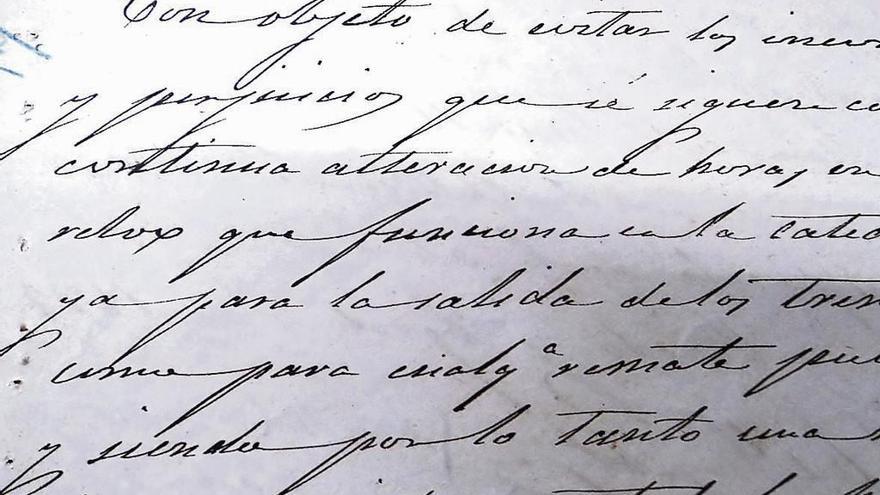 Con objeto de evitar los incon
y perjuicios que sé siguen co
continua alteracion de hora, en
relox que funciona en la cated
ya para la salida de los tren
como para cualqª remate pu
y siendo por lo tanto una